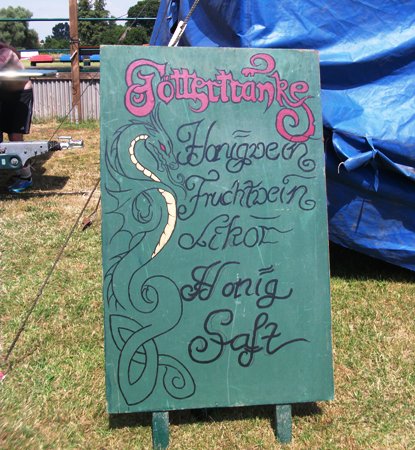 Göttertränke
Honigwein
Fruchtwein
Likör
Honig
Saft